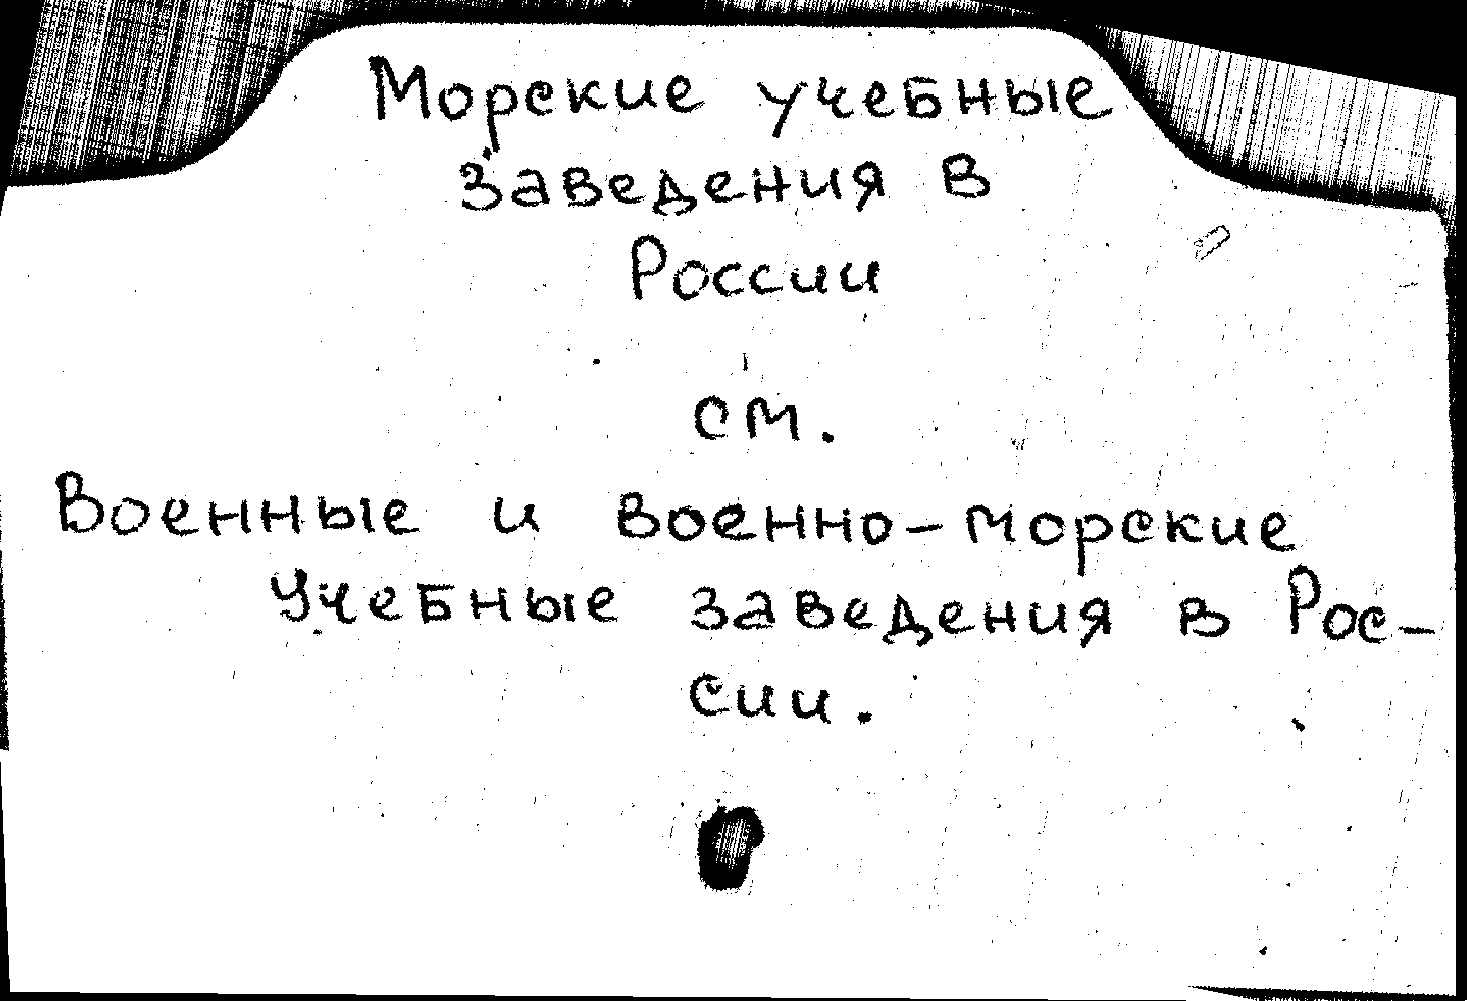 Морские учебные
заведения в
России
см.
Военные и военно-морские
учебные заведения в Рос-
сии.